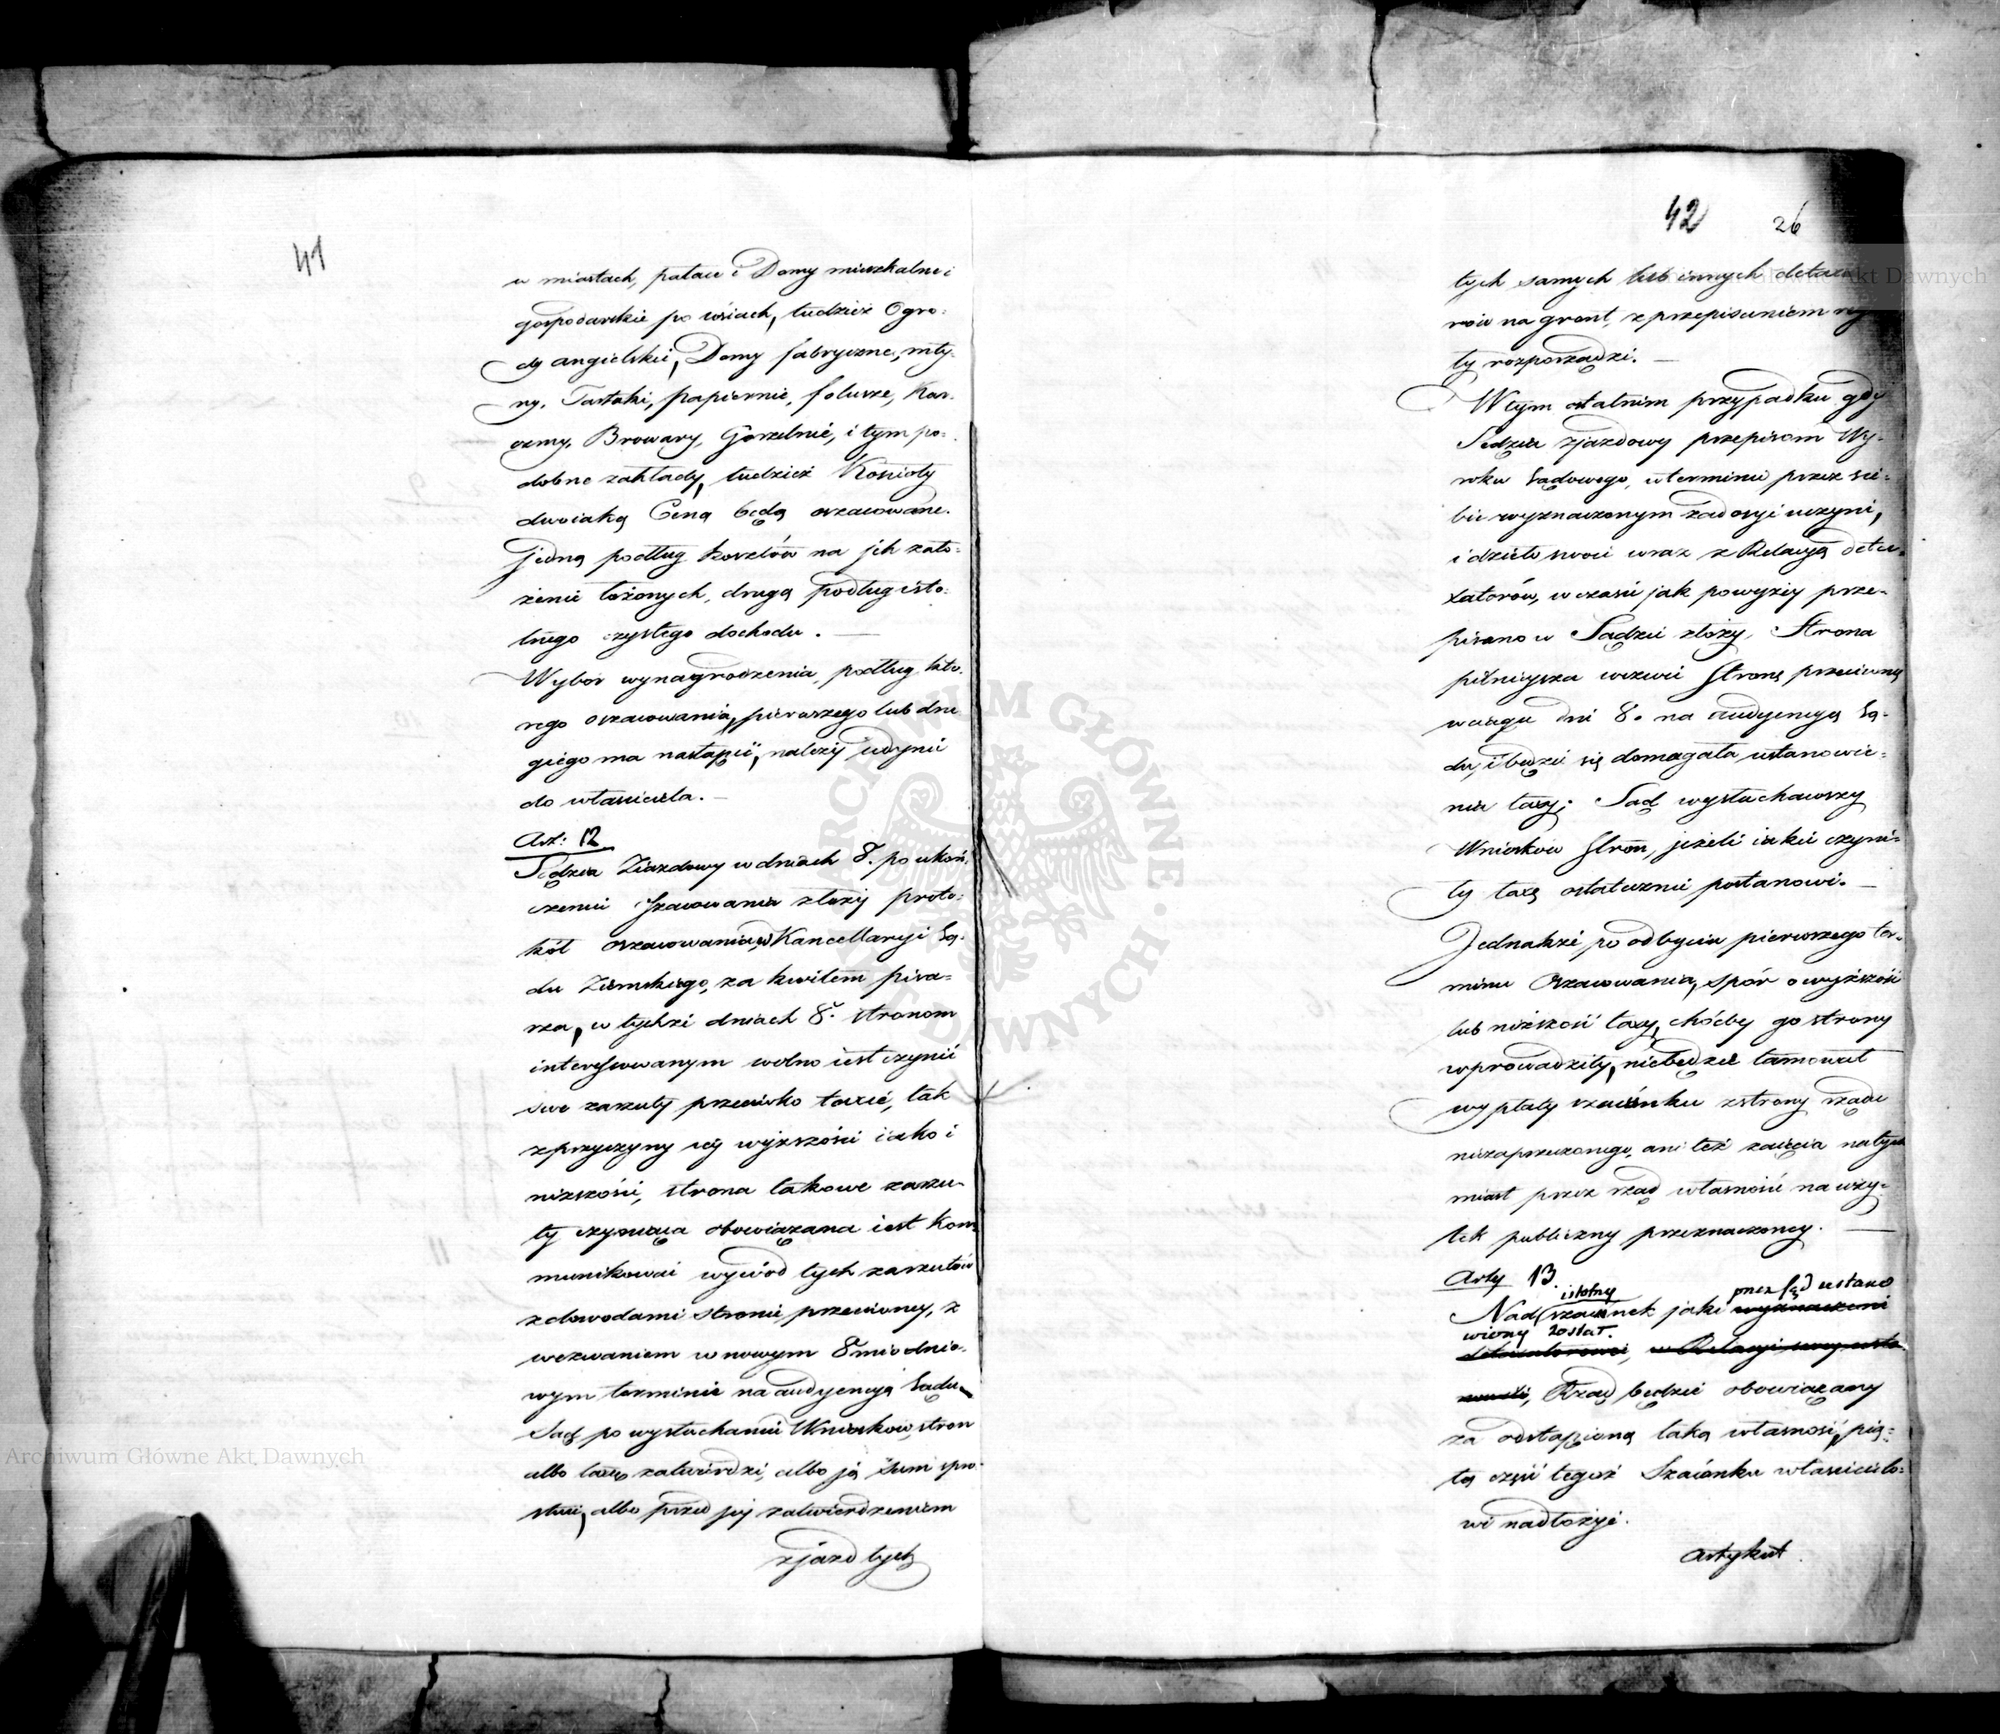 41
w miastach, pałace i Domy mieszkalne i
gospodarskie po wsiach, tudzież Ogro-
dy angielskie, Domy fabryczne, mły-
ny, Tartaki, papiernie, folusze, Kar-
czmy, Browary, Gorzelnie, i tym po-
dobne zakłady, tudzież Kościoły
dwoiaką Ceną będą oszacowane.
Jedną podług kosztów na jch zało-
żenie łożonych, drugą podług isto-
tnego czystego dochodu. —
Wybór wynagrodzenia, podług któ-
rego oszacowania, pierwszego lub dru
giego ma nastąpić, należy jedynie
do właściciela. —
Art: 12
Sędzia Ziazdowy w dniach 8. po ukoń
czeniu Szacowania złoży proto-
kół oszacowania, w Kancellaryi Są-
du Ziemskiego, za kwitem pisa-
rza, w tychże dniach 8. stronom
interesowanym wolno iest czynić
swe zarzuty przeciwko taxie, tak
z przyczyny iey wyższości iako i
niższości, strona takowe zarzu-
ty czyniąca obowiązana iest kom
munikować wywód tych zarzutów
z dowodami stronie przeciwney, z
wezwaniem w nowym 8mio dnio-
wym terminie na audyencyą Sądu.
Sąd po wysłuchaniu Wniosków stron
albo taxę zatwierdzi, albo ją Sam spro-
stuie, albo przed jey zatwierdzeniem
zjazd tych
42 26
tych samych lub innych detaxa
rów na grunt, z przepisaniem re
ty rozporządzi. —
W tym ostatnim przypadku gdy
Sędzia zjazdowy przepisom Wy-
roku Sądowego, w terminie przez sie-
bie wyznaczonym zadosyć uczyni,
i dzieło swoie wraz z Relacyą deta-
xatorów, w czasie jak powyżey prze-
pisano w Sądzie złoży, Strona
pilnieysza wezwie Stronę przeciwną
w ciągu dni 8. na audyencyą Są-
du, i będzie się domagała ustanowie-
nia taxy; Sąd wysłuchawszy
Wniosków Stron, jeżeli iakie czyni-
ły taxę ostatecznie postanowi. —
Jednakże po odbyciu pierwszego ter-
minu Oszacowania, spór o wyższość
lub niższość taxy, choćby go strony
wprowadziły, niebędzie tamował
wypłaty szacunku z strony rządu
niezaprzeczonego, ani też zaięcia natych
miast przez rząd własności na uży-
tek publiczny przeznaczoney. —
Arty 13.
istotny przez Sąd ustano
Nad szacunek jaki wyznaczeni
wiony został.
detaxatorowie, w Relacyi swey usta-
, Rząd będzie obowiązany
za odstąpioną taką własność, pią-
tą część tegoż Szacunku właścicielo-
wi nadłożyć.
Artykuł.
ARCHIWUM GŁÓWNE AKT DAWNYCH
Archiwum Główne Akt Dawnych
Archiwum Główne Akt Dawnych